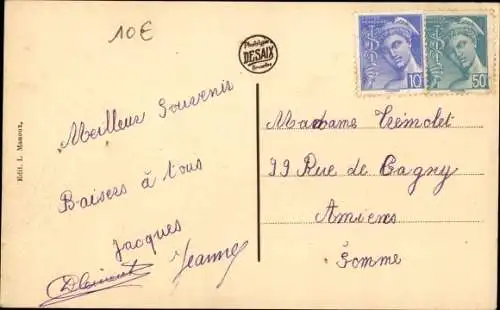 10€
Phototypie
DESAIX
Bruxelles
10
50
Edit. L. Manoux,
Meilleur Souvenir
Baisers à tous
Jacques
Jeanne
Madame Tremolet
99 Rue de Cagny
Amiens
Somme